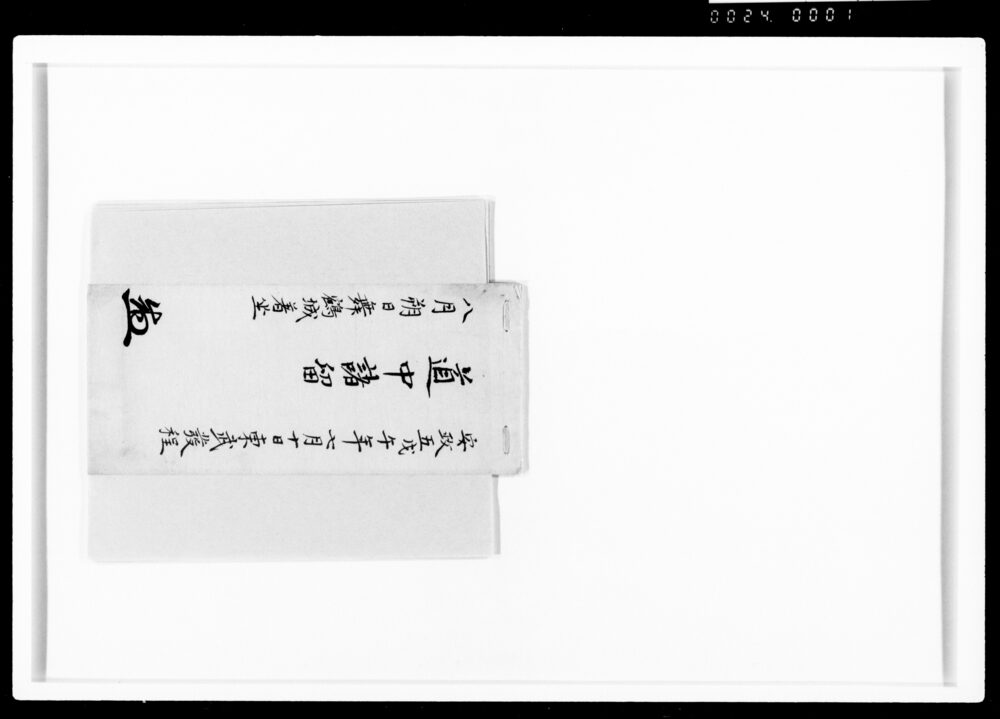 0024. 0001
安政五戊午年七月十日東武發程
道中諸留
八月朔日舞鶴城着坐